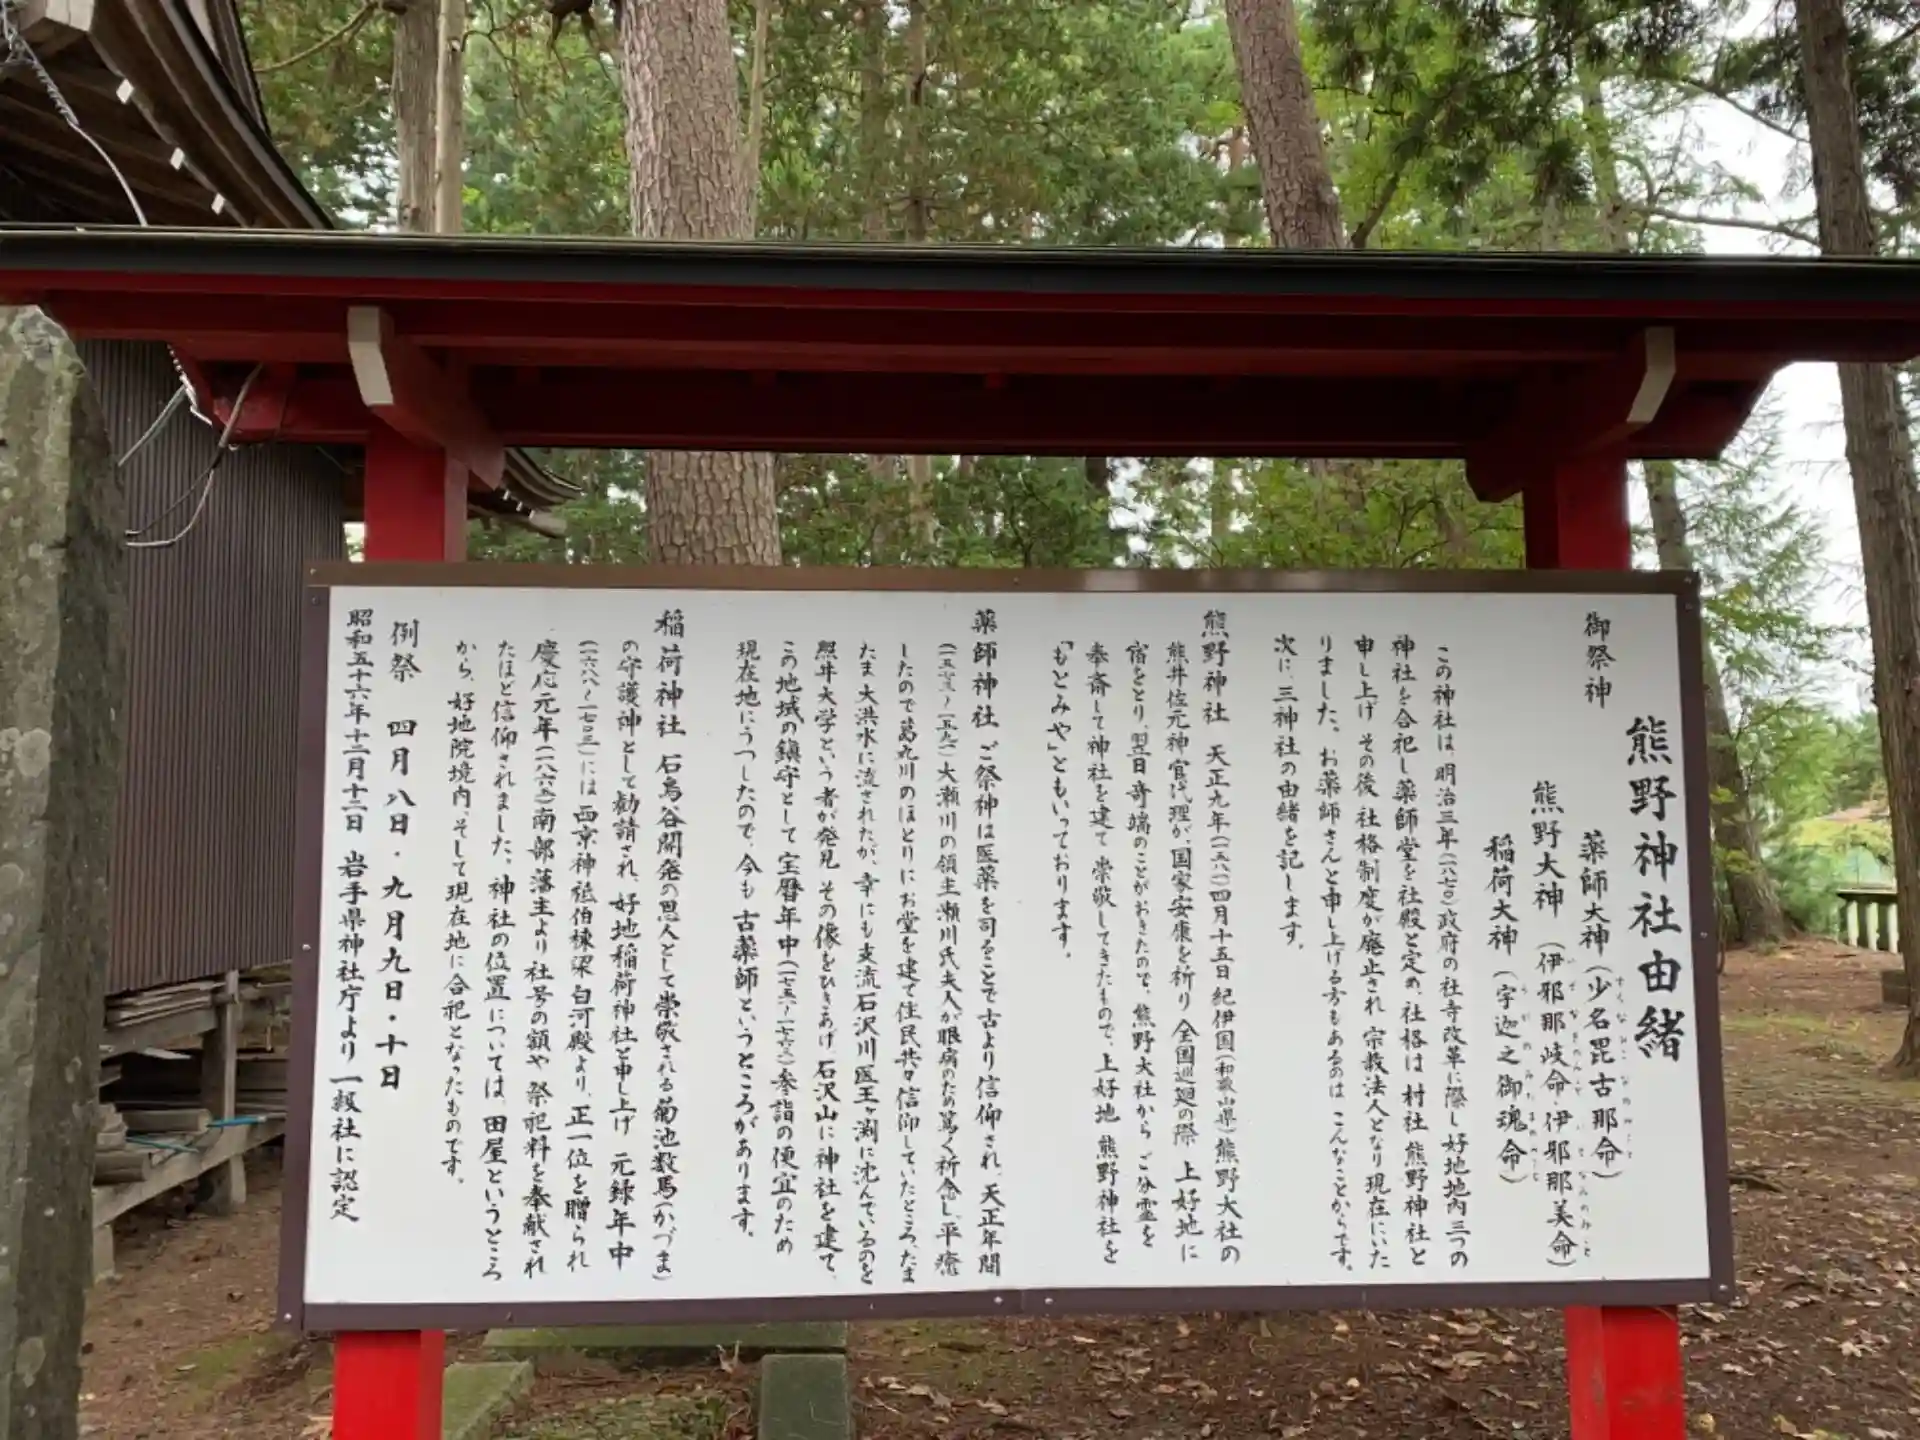 熊野神社由緒
御祭神
薬師大神(少名毘古那命)
すくなびこなのみこと
熊野大神(伊邪那岐命・伊邪那美命)
いざなぎのみこと いざなみのみこと
稲荷大神(宇迦之御魂命)
うかのみたまのみこと
この神社は、明治三年(一八七〇)政府の社寺改革に際し好地地内三つの
神社を合祀し薬師堂を社殿と定め、社格は村社 熊野神社と
申し上げ その後 社格制度が廃止され 宗教法人となり現在にいた
りました。お薬師さんと申し上げる方もあるのは こんなことからです。
次に、三神社の由緒を記します。
熊野神社 天正九年(一五八一)四月十五日紀伊国(和歌山県)熊野大社の
熊井佐元神官代理が、国家安康を祈り 全国巡廻の際 上好地に
宿をとり、翌日奇端のことがおきたので、熊野大社から ご分霊を
奉斎して神社を建て 崇敬してきたもので、上好地 熊野神社を
「もとみや」ともいっております。
薬師神社 ご祭神は医薬を司ることで古より信仰され、天正年間
(一五七三〜一五九一)大瀬川の領主瀬川氏夫人が眼病のため篤く祈念し、平癒
したので葛丸川のほとりにお堂を建て住民共々信仰していたところ、たま
たま 大洪水に流されたが、幸にも支流石沢川医王ヶ渕に沈んでいるのを
照井大学という者が発見 その像をひきあげ、石沢山に神社を建て、
この地域の鎮守として 宝暦年中(一七五一〜一七六三)参詣の便宜のため
現在地にうつしたので、今も 古薬師というところがあります。
稲荷神社 石鳥谷開発の恩人として崇敬される菊池数馬(かづま)
の守護神として勧請され、好地稲荷神社と申し上げ 元録年中
(一六八八〜一七〇三)には 西京神祇伯棟梁 白河殿より、正一位を贈られ
慶応元年(一八六五)南部藩主より社号の額や 祭祀料を奉献され
たほど信仰されました。神社の位置については、田屋というところ
から、好地院境内、そして現在地に合祀となったものです。
例祭 四月八日・九月九日・十日
昭和五十六年十二月十二日 岩手県神社庁より 一級社に認定